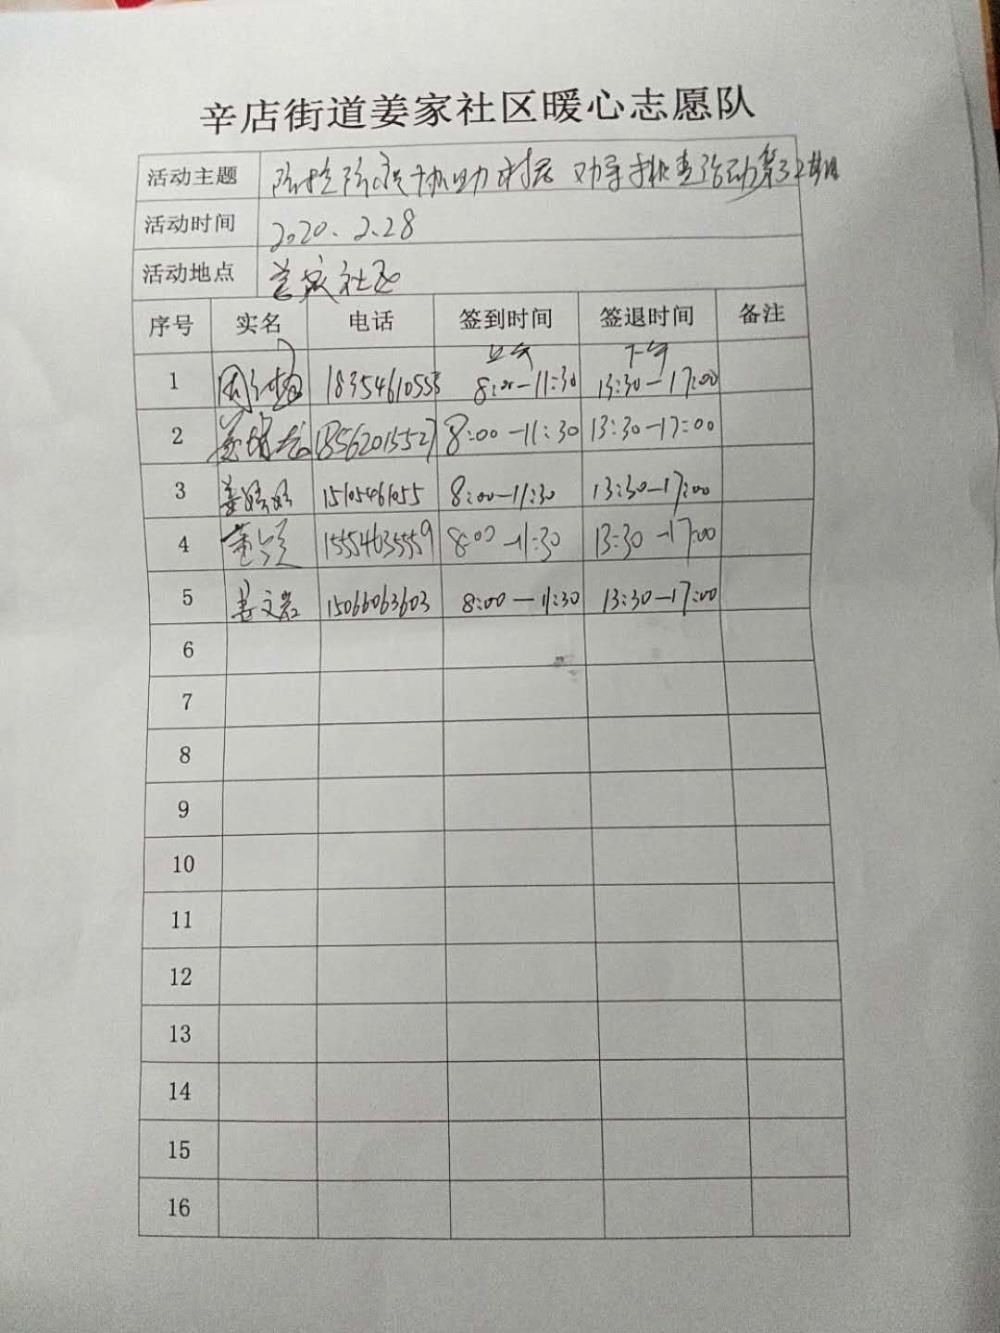 辛店街道姜家社区暖心志愿队
活动主题 防控防疫协助村居 劝导排查活动第32期
活动时间 2020.2.28
活动地点 姜家社区
序号 实名 电话 签到时间 签退时间 备注
上午 下午
1 18354610553 8:00-11:30 13:30-17:00
2 姜 18562015527 8:00-11:30 13:30-17:00
3 姜婷婷 15105461055 8:00-11:30 13:30-17:00
4 15554635559 8:00-11:30 13:30-17:00
5 姜文岩 15066063603 8:00-11:30 13:30-17:00
6
7
8
9
10
11
12
13
14
15
16